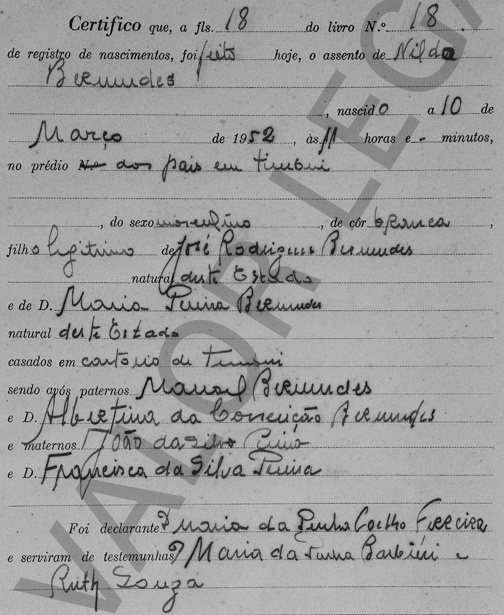 Certifico que, a fls. 18 do livro N.º 18
de registro de nascimentos, foi feito hoje, o assento de Nildo
Bermudes
, nascido a 10 de
Março de 1952, às 11 horas e - minutos,
no prédio dos pais em timbui
, do sexo masculino, de côr branca,
filho legitimo de José Rodrigues Bermudes
natural deste Estado
e de D. Maria Bermudes
natural deste Estado
casados em cartorio de timbui
sendo avós paternos Manoel Bermudes
e D. Albertina da Conceição Bermudes
e maternos João da Silva
e D. Francisca da Silva
Foi declarante Maria da Penha Coelho Ferreira
e serviram de testemunhas Maria da e
Ruth Souza
VALOR LEGAL